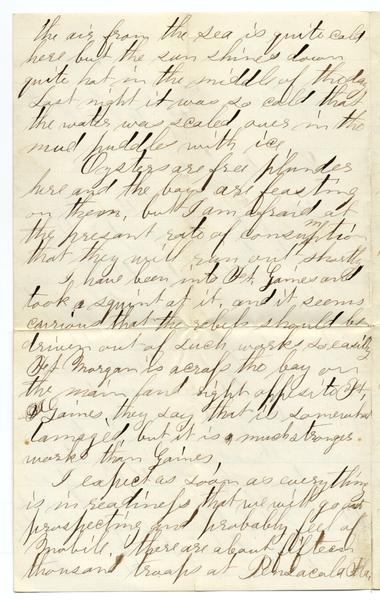 the air from the sea is quite cold
here but the sun shines down
quite hot in the middle of the day
Last night it was so cold that
the water was scaled over in the
mud puddles with ice,
Oysters are free plunder
here and the boys are feasting
on them, but I am afraid at
the present rate of consumptio
that they will run out shortly
I have been into Ft. Gaines and
took a squint at it, and it seems
curious that the rebels should be
driven out of such works so easily
Ft Morgan is across the bay on
the main land right opposite Ft,
Gaines, they say that is somewhat
damaged but it is a much stronger
works than Gaines,
I expect as soon as everything
is in readiness that we will go out
prospecting and probably feel of
Mobile, there are about fifteen
thousand troops at Pensacola Fla,